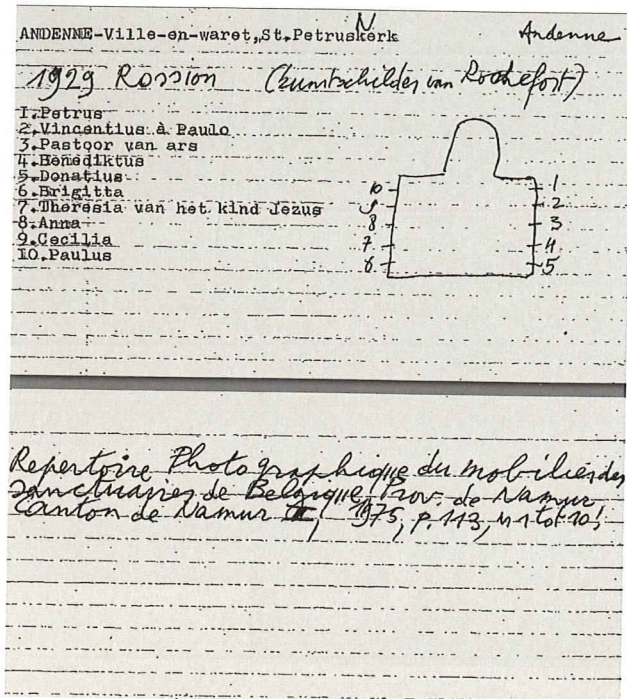 ANDENNE-Ville-en-waret,,St.Petruskerk
N
Andenne
1929 Rossion (kunstschilder van Rochefort)
I.Petrus
2.Vincentius à Paulo
3.Pastoor van ars
4.Benediktus
5.Donatius
6.Brigitta
7.Theresia van het kind Jezus
8.Anna
9.Cecilia
IO.Paulus
10 1
9 2
8 3
7 4
6 5
Repertoire Photographique du mobilier des
sanctuaires de Belgique, Prov. de Namur
Canton de Namur II, 1975, p. 113, n 1 tot 10!